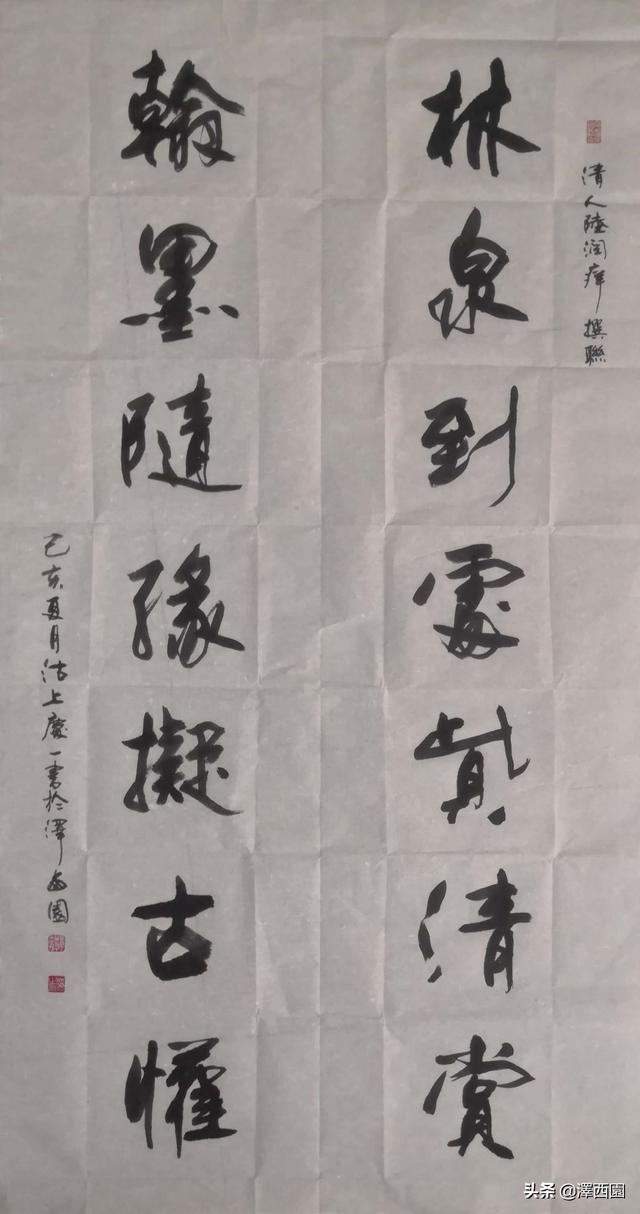 清人陸润庠撰聯
林泉到處貲清賞
翰墨隨緣擬古懽
己亥夏月沽上慶一書於澤西園
头条 @澤西園